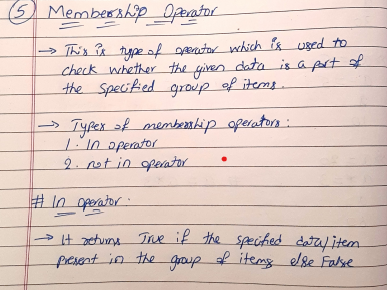 5 Membership Operator
→ This is type of operator which is used to
check whether the given data is a part of
the specified group of items.
→ Types of membership operators:
1. In operator
2. not in operator
# In operator.
→ It returns True if the specified data/item
present in the group of items else False